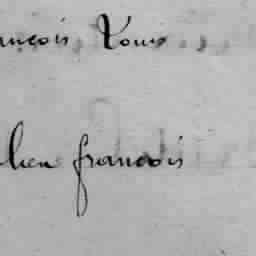 ançois Louis
lien francois